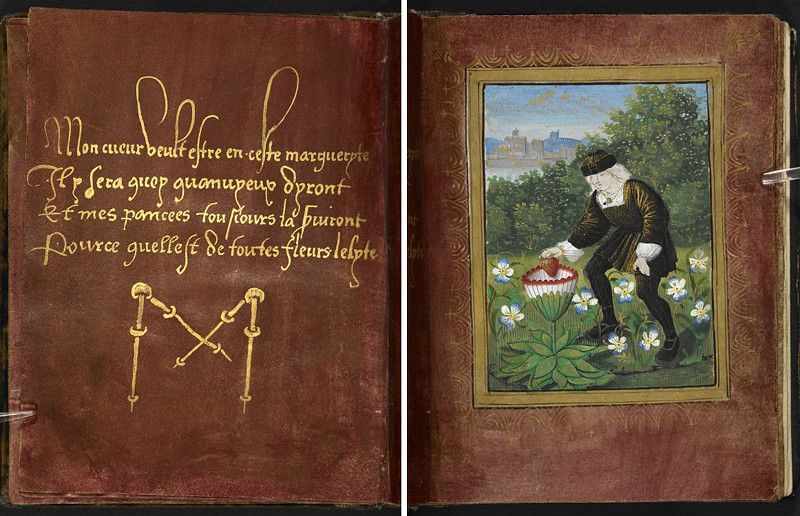 Mon cueur veult estre en ceste margueryte
Il y sera quoy quanvyeux dyront
Et mes pancees tousiours la suiviront
Pource quellest de toutes fleurs leslyte
M